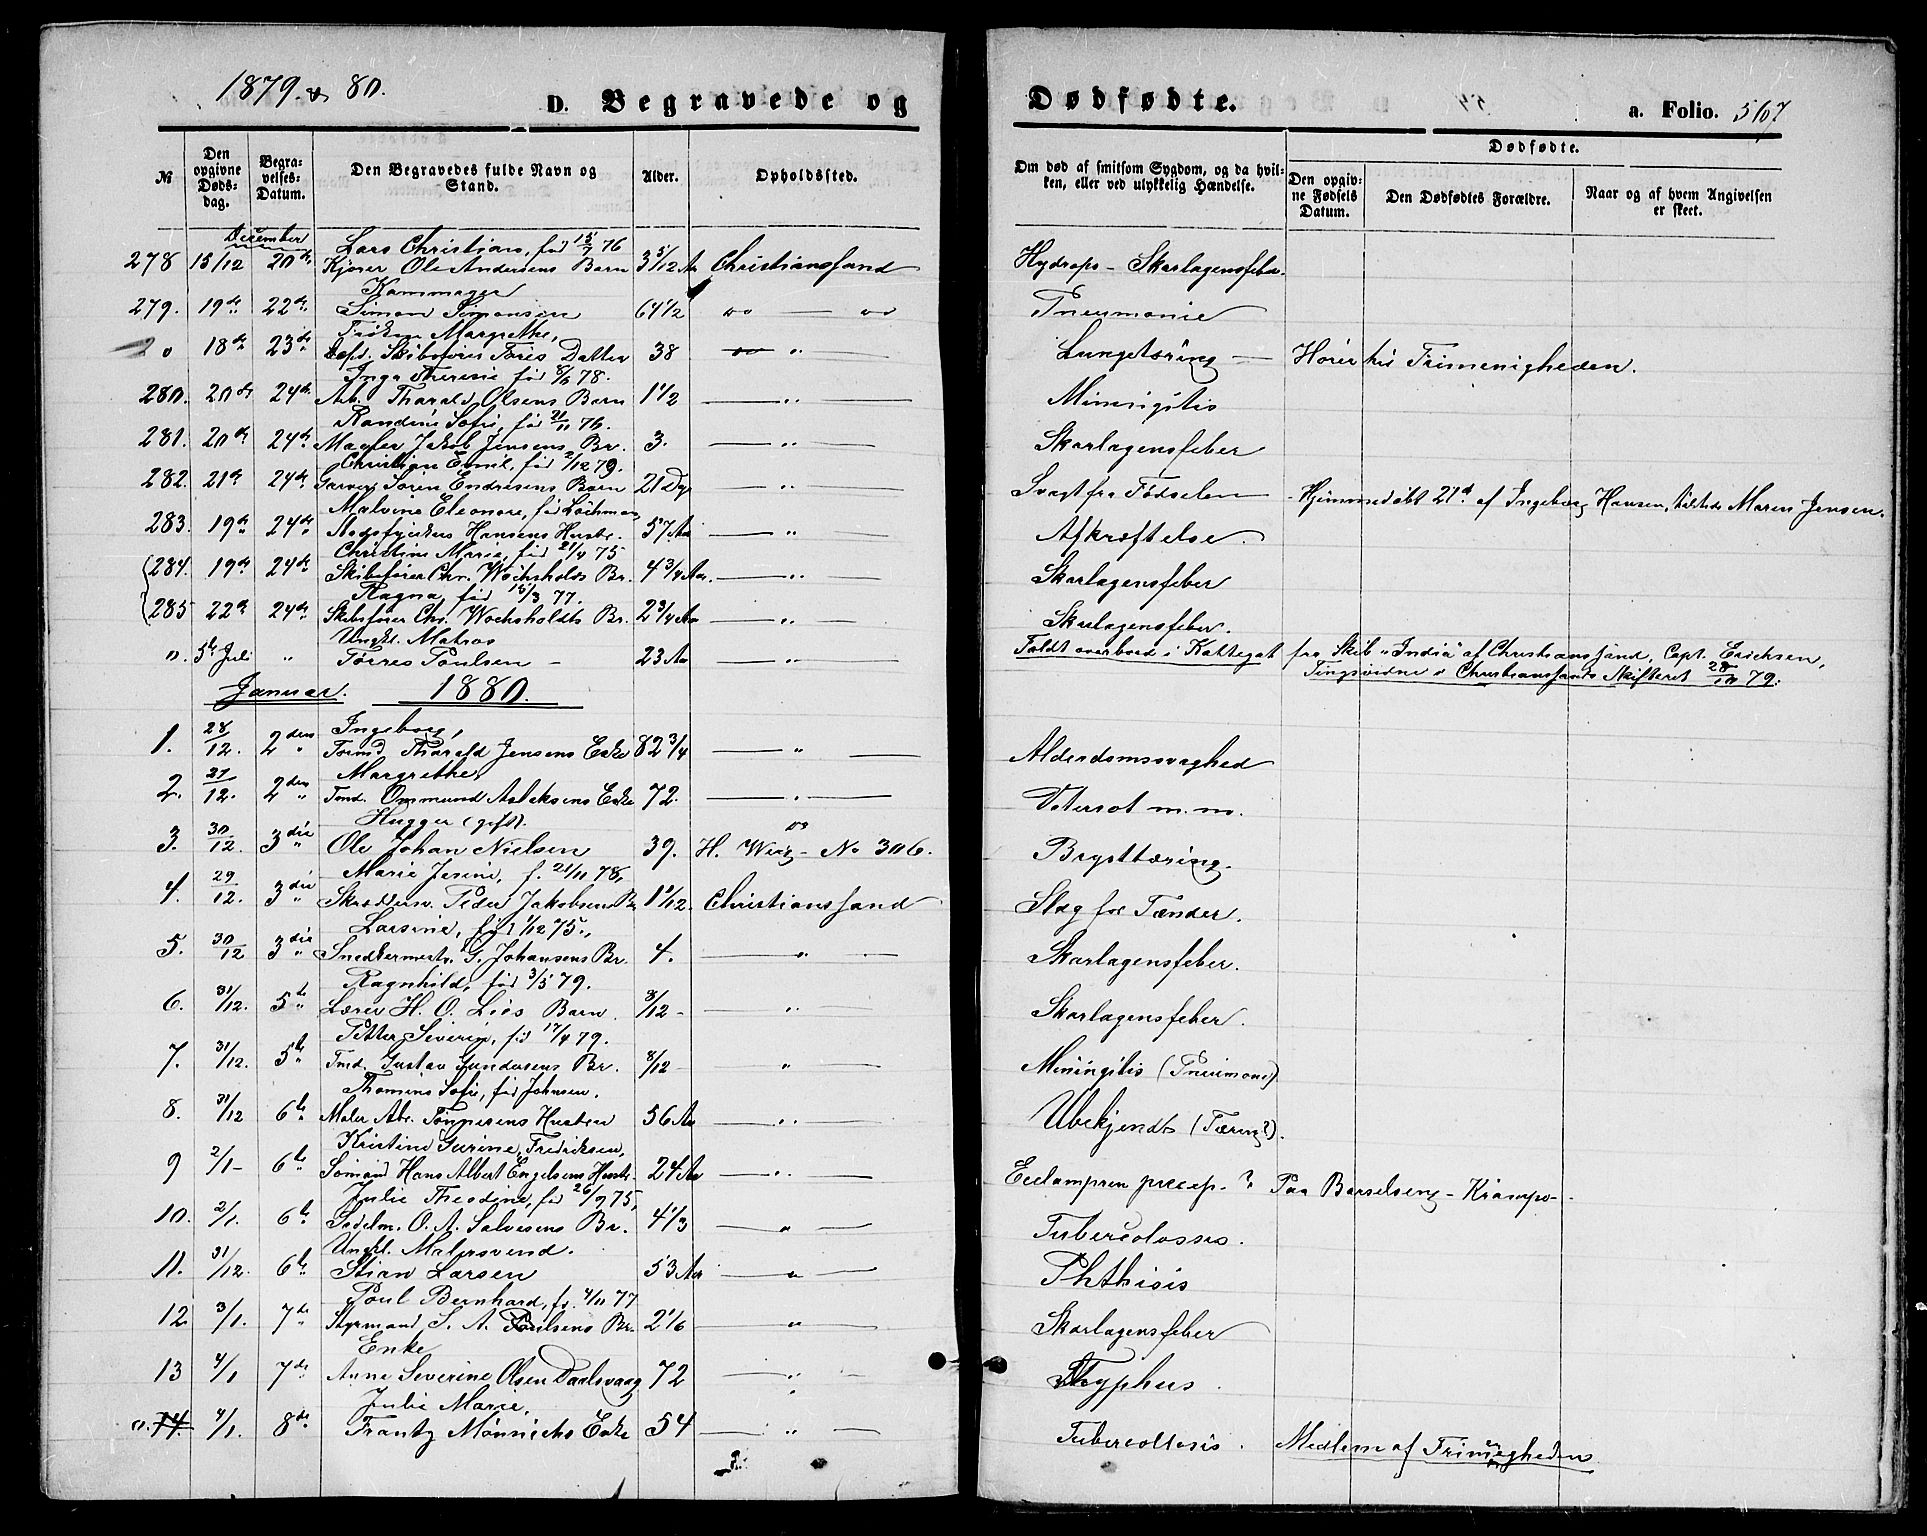 1879 & 80.
D. Begravede og Dødfødte.
a. Folio. 567
№
Den opgivne Dødsdag.
Begravelses-Datum.
Den Begravedes fulde Navn og Stand.
Alder.
Opholdssted.
Om død af smitsom Sygdom, og da hvilken, eller ved ulykkelig Hændelse.
Dødfødte.
Den opgivne Fødsels Datum.
Den Dødfødtes Forældre.
Naar og af hvem Angivelsen er skeet.
December
Lars Christian, fød 15/7 76
278 15/12 20de Kjører Ole Andersens Barn 3 5/12 Aar Christianssand Hydrops - Skarlagensfeber
Kammager
279. 19de 22de Simon Simonsen 64 1/2 " — " Pneumonie
Frøken Margrethe,
o 18de 23de Skibsfører Foris Datter 38 — " Lungetæring — Hører til Frimenigheden.
Inga Theresie fød 8/6 78.
280. 20de 24de Arb. Tharald Olsens Barn 1 1/2 — " — Miningitis
Randine Sofie, fød 21/11 76.
281. 20de 24de Mægler Jakob Jensens Br. 3. — " — Skarlagensfeber
Christian Emil, fød 2/12 79.
282. 21de 24de Garver Søren Endresens Barn 21 Dg — " — Svagt fra Fødselen — Hjemmedøbt 21de af Ingeborg Hansen, tilstede Maren Jensen.
Malvine Eleonore, fød Lochman,
283. 19de 24de Hansens Hustr. 57 Aar — " — Afkræftelse.
Christine Marie, fød 21/4 75
(284. 19de 24de Skibsfører Chr. Wochsholdts Br. 4 3/4 Aar. — " — Skarlagensfeber
Ragna, fød 16/3 77.
(285 22de 24de Skibsfører Chr. Wochsholdts Br. 2 3/4 Aar — " — Skarlagensfeber.
Ungkl. Matros
o. 5te Juli " Tørres Poulsen — 23 Aar — " — Faldt overbord i Kattegat fra Skib "India" af Christianssand, Capt. Erichsen,
Tingsvidne i Christianssands Skifteret 28/10 79.
Januar. 1880.
Ingeborg,
1. 28/12. 2den Tømd. Tharald Jensens Enke 82 3/4 — " — Alderdomssvaghed
Margrethe,
2. 27/12. 2den Tmd. Ommund Aslaksens Enke 72. — " — Vatersot m. m.
Hugger (gift).
3. 30/12. 3die Ole Johan Nielsen 39. H. Weig - No 306. Brysttæring.
Marie Jesine, f. 21/11 78,
4. 29/12. 3die Skræddersv. Peder Jakobsens Br 1 1/12. Christianssand Slag for Tænder.
Larsine, fød 1/12 75.,
5. 30/12 3die Snedkermestr. G. Johansens Br. 4. — " — Skarlagensfeber.
Ragnhild, fød 3/5 79.
6. 31/12. 5te Lærer H. O. Lies Barn 8/12 - — " — Skarlagensfeber.
Petter Severin, fød 17/4 79.
7. 31/12. 5te Tmd. Gustav Gundersens Br. 8/12 - — " — Miningitis (Pneumoni)
Thomine Sofie, fød Johnsen.
8. 31/12 6te Maler Abr. Tønnesens Hustru 56 Aar — " — Ubekjendt (Tæring?).
Kristine Gurine, Fredriksen,
9 2/1 - 6te Sømand Hans Albert Engelsens Hustr. 24 Aar — " — Eclampsen ? Paa Barselseng - Krampe -
Julie Theodine, fød 26/9 75,
10. 2/1. 6te Sadelm. O. A. Salvesens Br. 4 1/3 — " — Tuberculosis.
Ungkl. Malersvend.
11. 31/12. 6te Stian Larsen 53 Aar — " — Phthisis
Poul Bernhard, fø. 4/11 77
12. 3/1. 7de Styrmand S. A. Poulsens Br. 2 1/6 — " — Skarlagensfeber
Enke
13 4/1 7de Anne Severine Olsen Daalsvaag 72 — " — Typhus.
Julie Marie,
o. 14. 4/1. 8de Frantz Mønnichs Enke 54 — " — Tubercolosis. Medlem af Frimenigheden